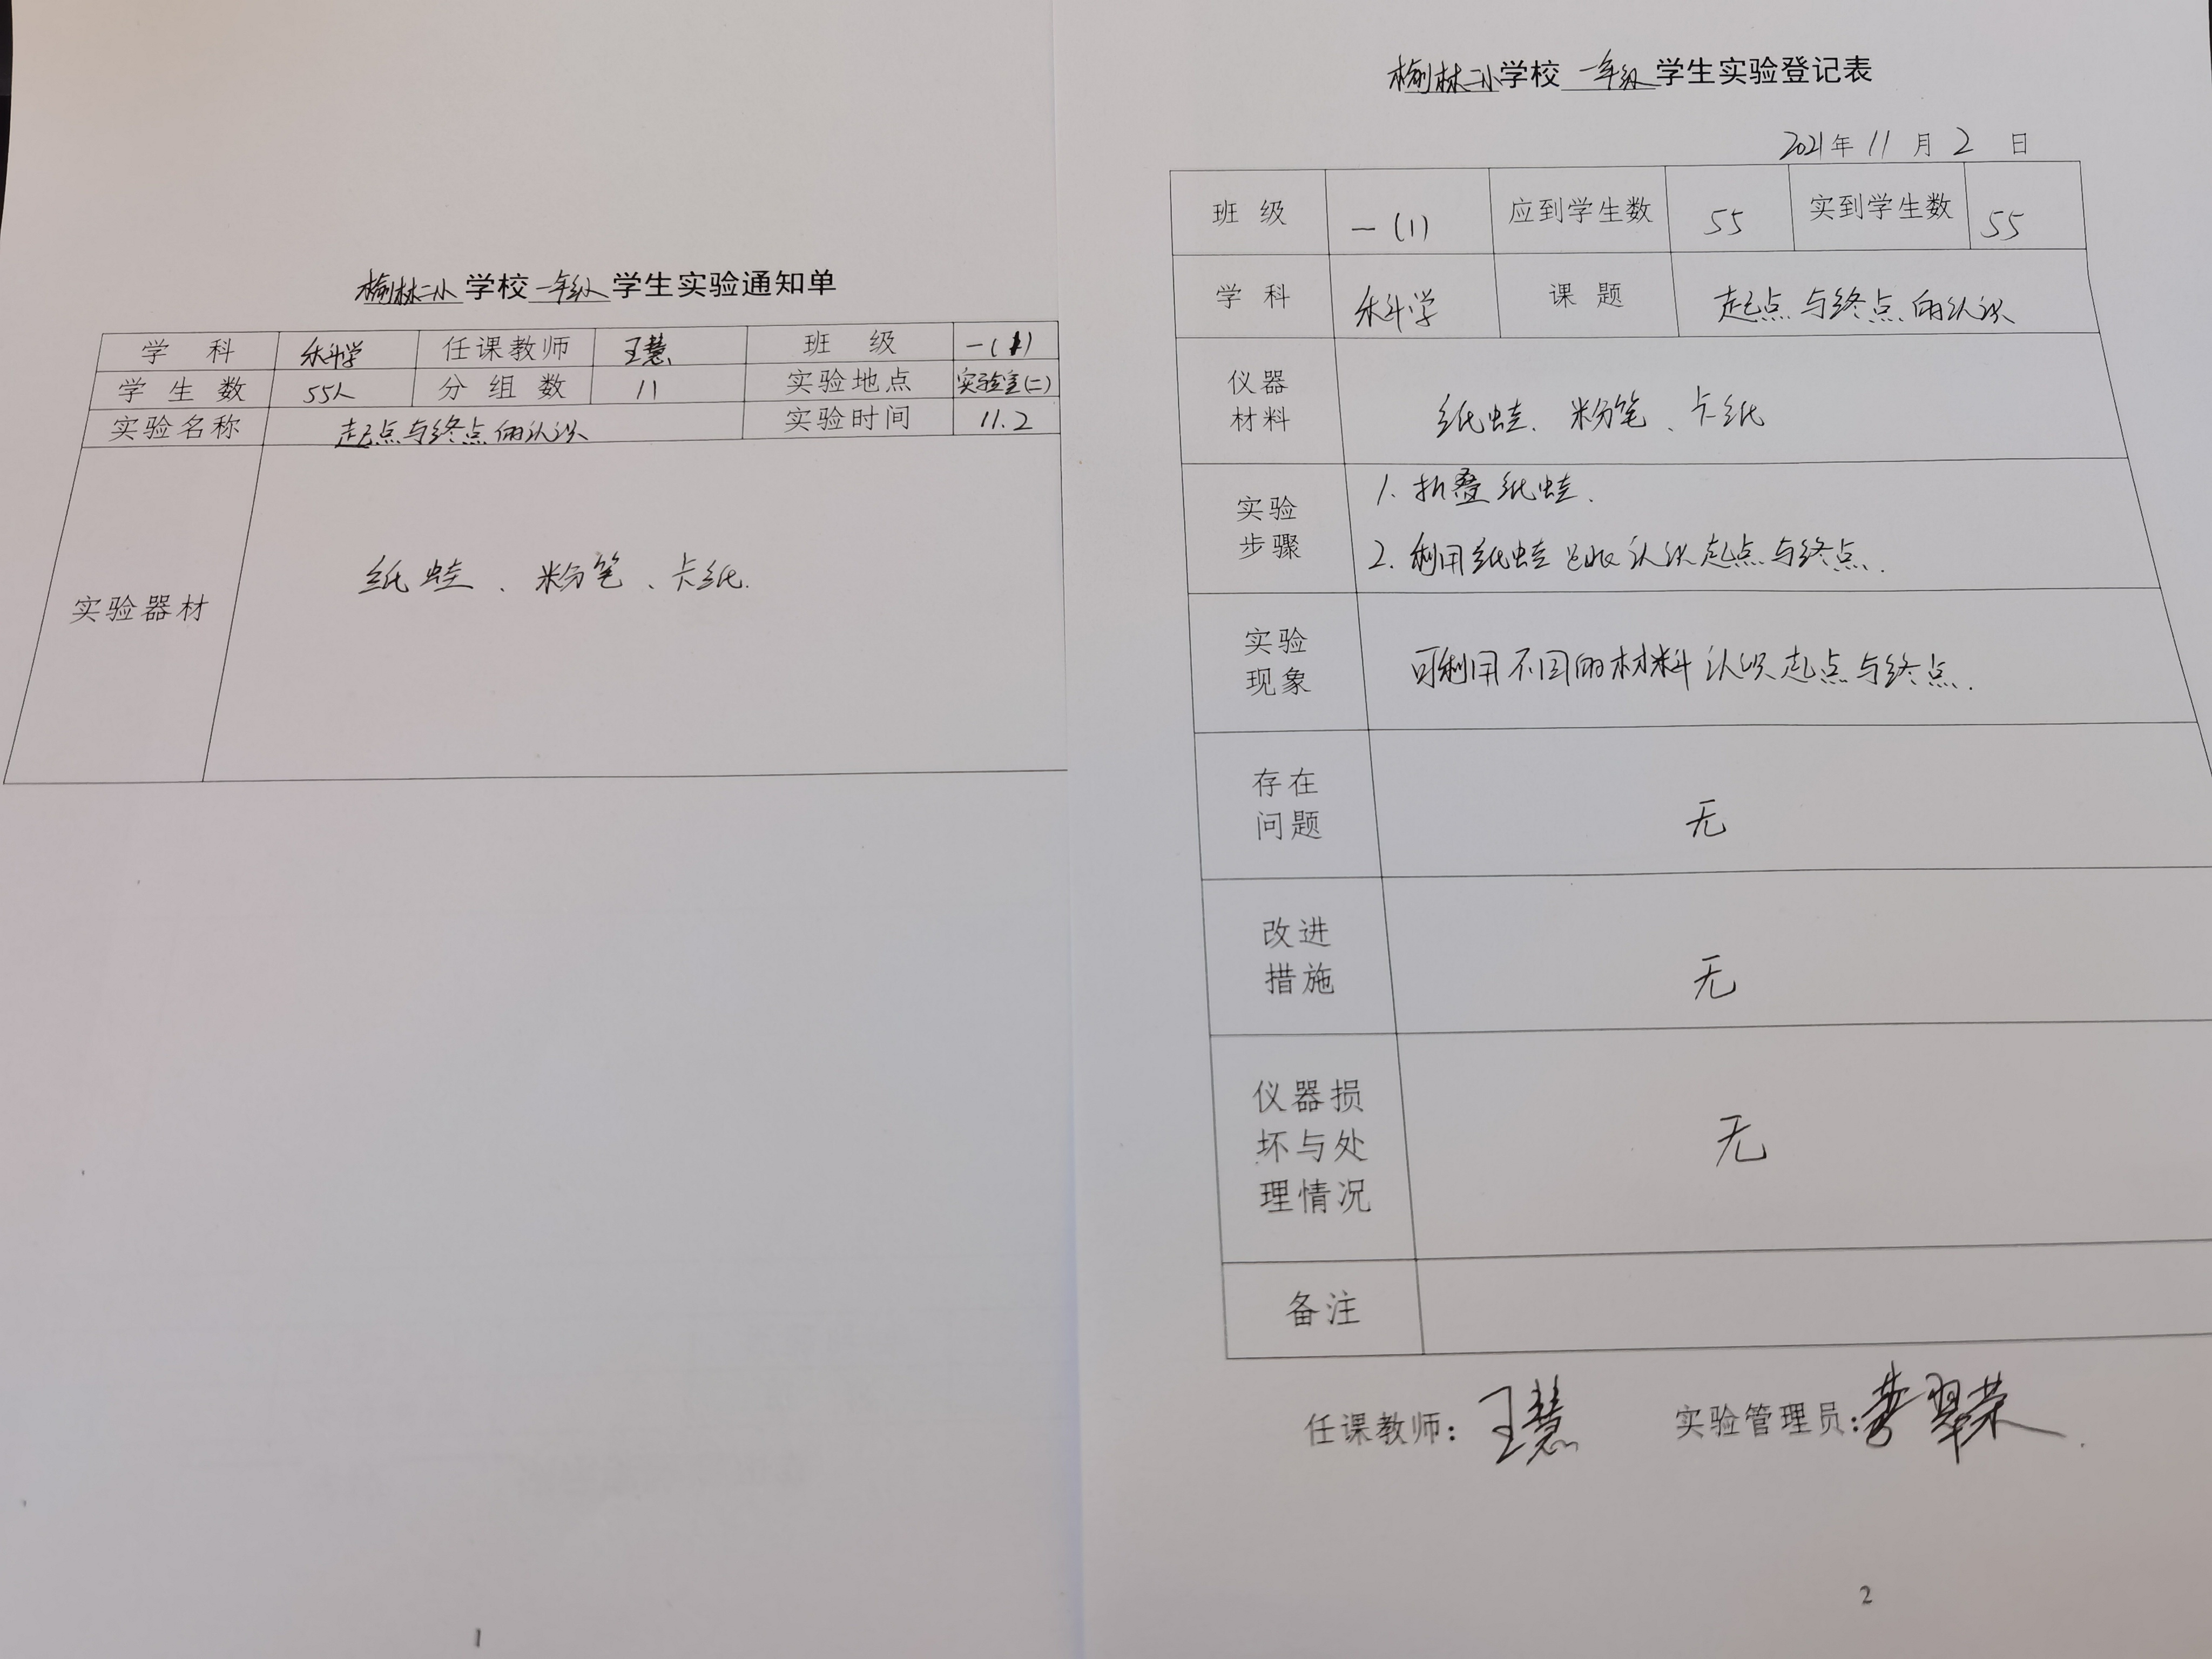 榆林二小学校一年级学生实验通知单
学 科 科学 任课教师 王慧 班 级 一(1)
学 生 数 55人 分 组 数 11 实验地点 实验室(二)
实验名称 起点与终点的认识 实验时间 11.2
实验器材 纸蛙、粉笔、卡纸.
1
榆林二小学校一年级学生实验登记表
2021年 11 月 2 日
班 级 一(1) 应到学生数 55 实到学生数 55
学 科 科学 课 题 起点与终点的认识
仪器
材料
纸蛙、粉笔、卡纸
实验
步骤
1. 折叠纸蛙.
2. 利用纸蛙 认识起点与终点.
实验
现象
可利用不同的材料认识起点与终点.
存在
问题
无
改进
措施
无
仪器损
坏与处
理情况
无
备注
任课教师：王慧 实验管理员：翠荣
2